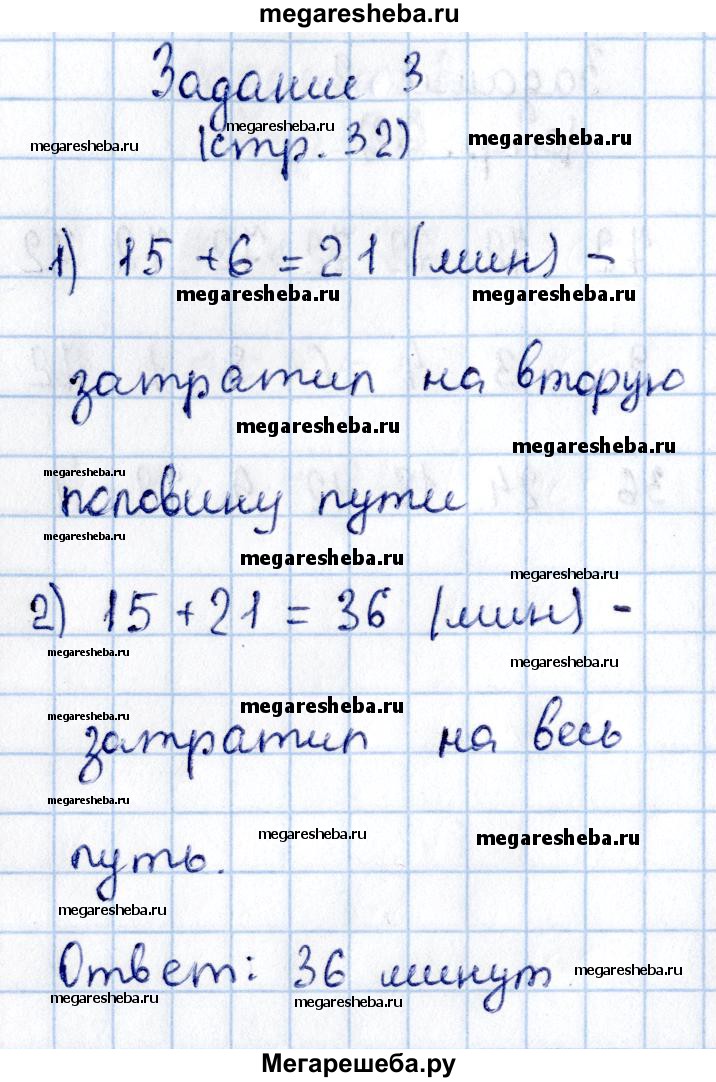 megaresheba.ru
Задание 3
megaresheba.ru
megaresheba.ru
megaresheba.ru
(стр. 32)
1) 15 + 6 = 21 (мин) -
megaresheba.ru
megaresheba.ru
затратил на вторую
megaresheba.ru
megaresheba.ru
megaresheba.ru
половину пути
megaresheba.ru
megaresheba.ru
megaresheba.ru
2) 15 + 21 = 36 (мин) -
megaresheba.ru
megaresheba.ru
megaresheba.ru
megaresheba.ru
затратил на весь
megaresheba.ru
megaresheba.ru
megaresheba.ru
путь.
megaresheba.ru
Ответ: 36 минут
megaresheba.ru
megaresheba.ru
megaresheba.ru
Мегарешеба.ру